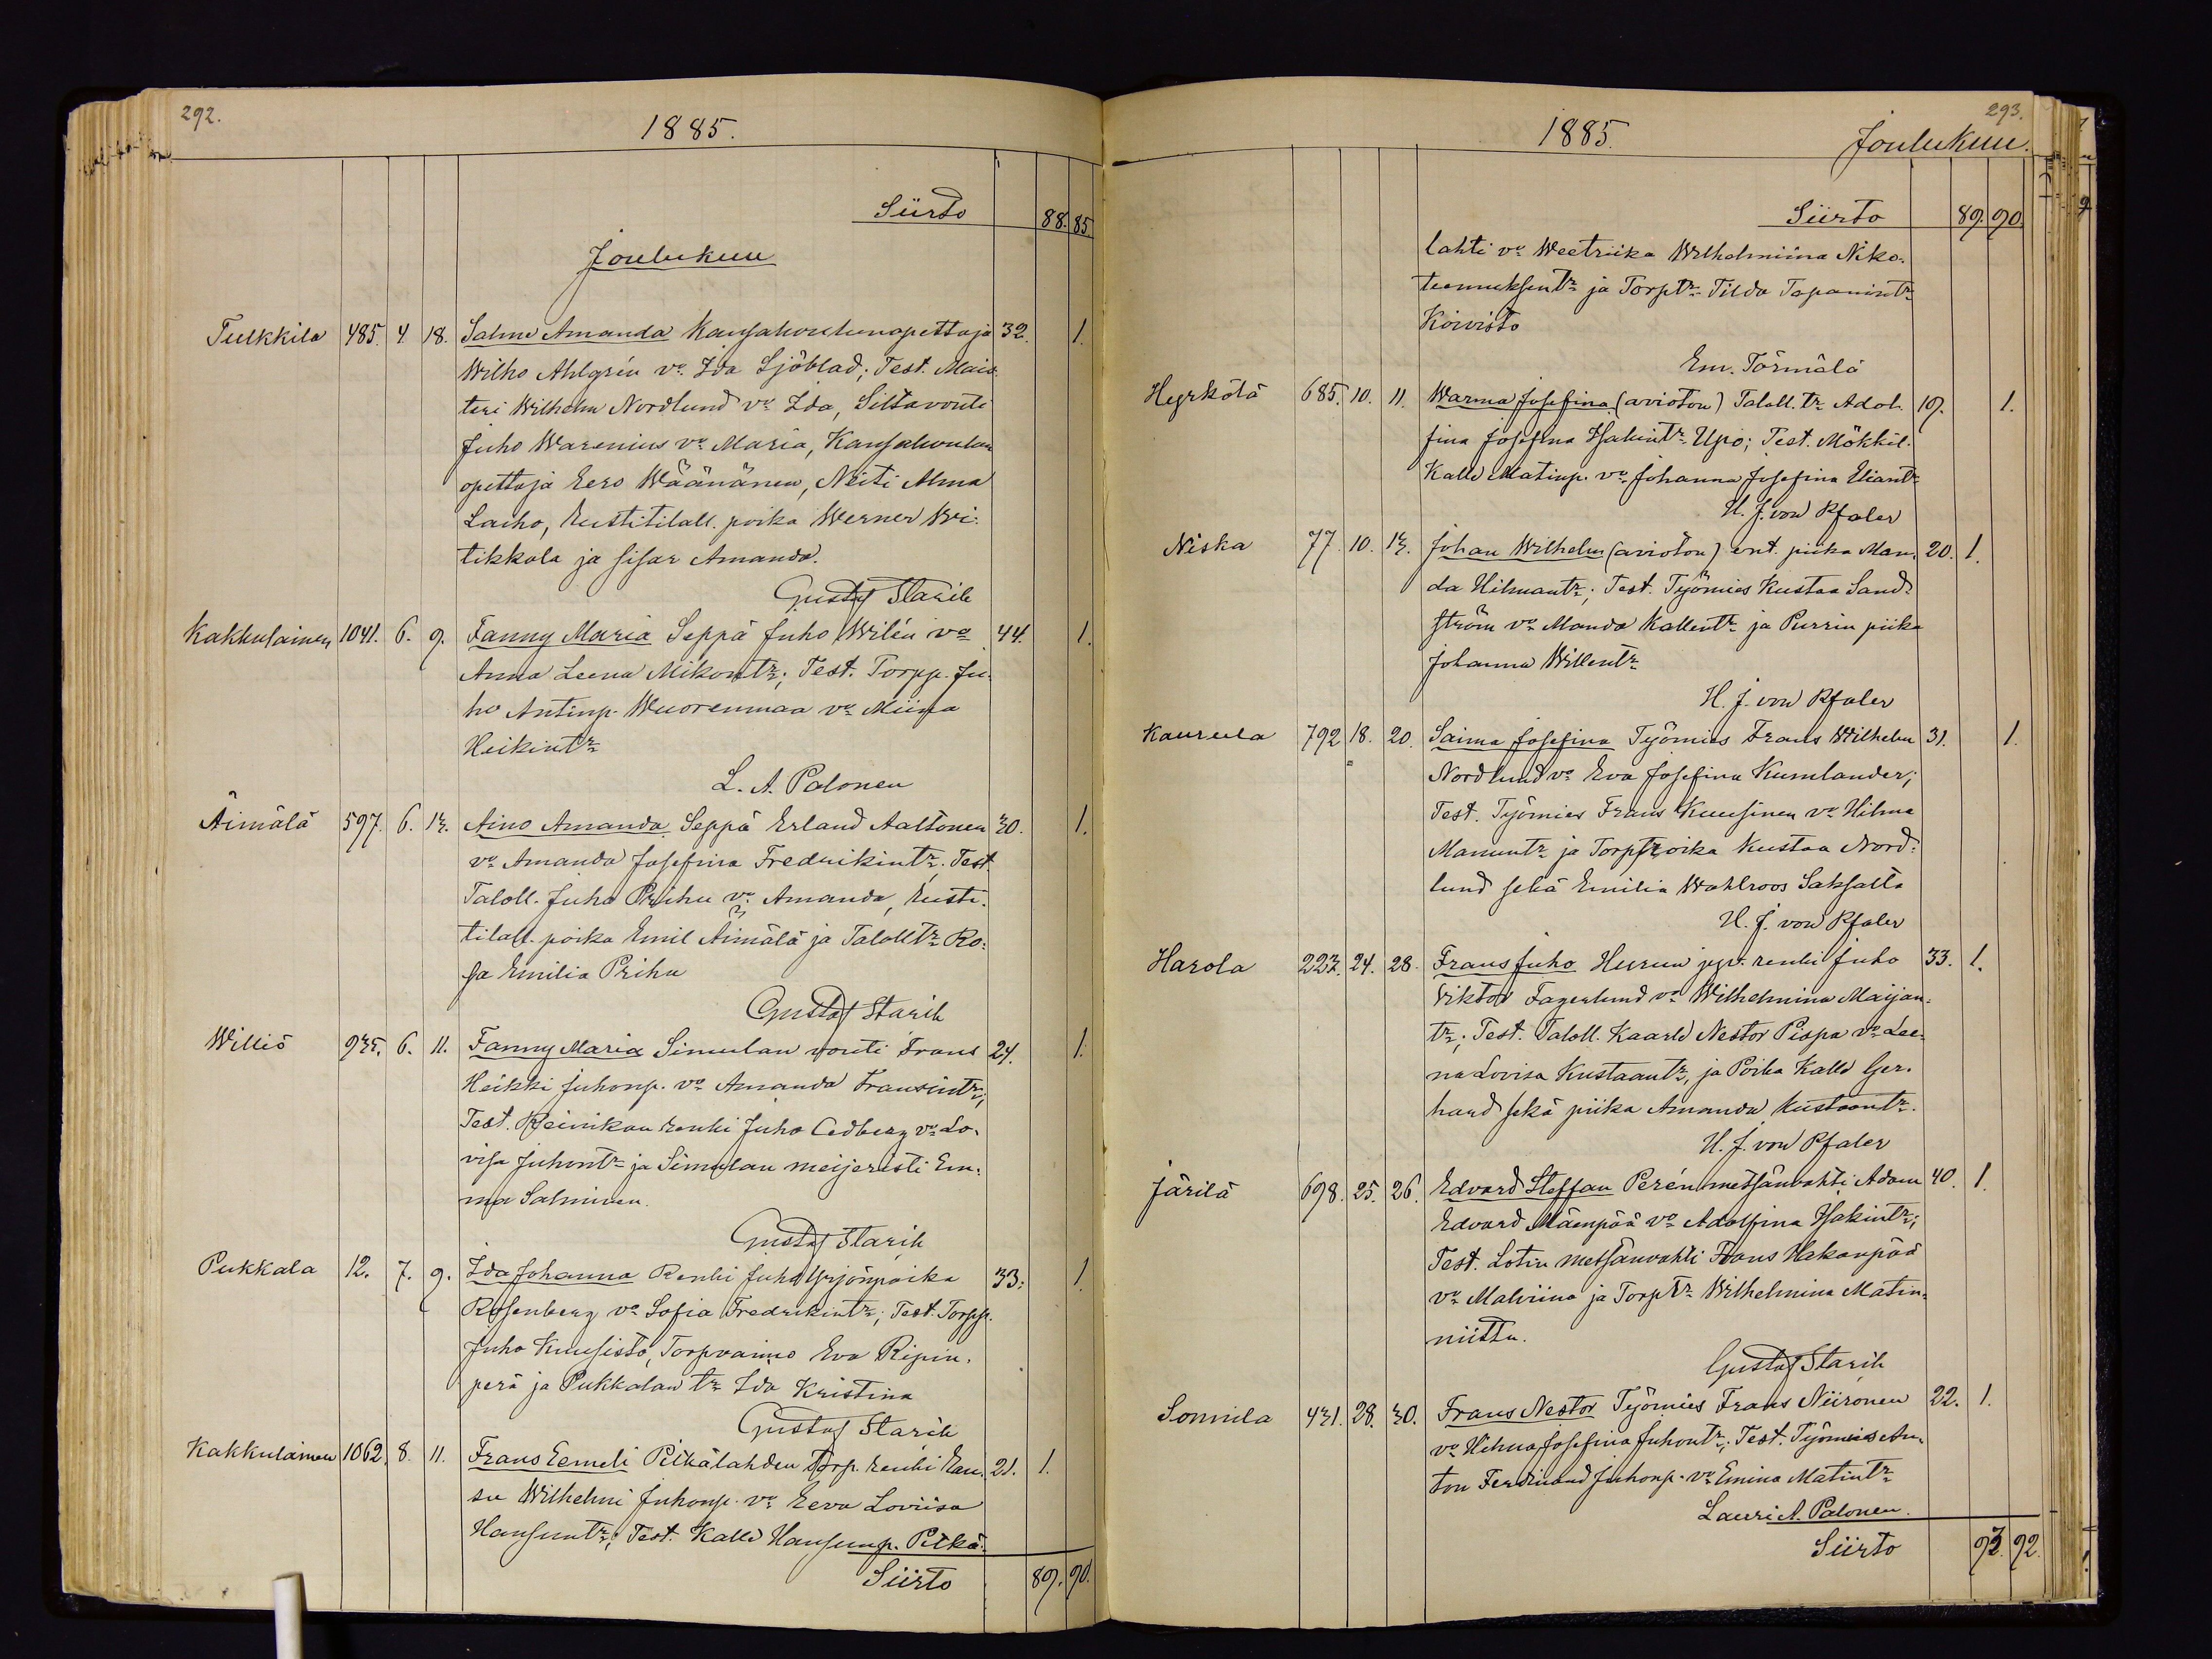 292.
1885.
Siirto 88. 85.
Joulukuu
Tulkkila 485. 4. 18. Salme Amanda Kansakoulunopettaja 32. 1.
Wilho Ahlgrén vo Ida Sjöblad; Test. Mais-
teri Wilhelm Nordlund vo Ida, Siltavouti
Juho Warenius vo Maria, Kansakoulun
opettaja Eero Wäänänen, Neiti Alma
Laiho, Rustitilall. poika Werner Wri-
tikkala ja sisar Amanda.
Gustaf Starih
Kakkulainen 1041. 6. 9. Fanny Maria Seppä Juho Wilén vo 44. 1.
Anna Leena Mikontr; Test. Torpp. Ju-
ho Antinp. Wuorenmaa vo Miina
Heikintr
L. A. Palonen
Äimälä 597. 6. 13. Aino Amanda Seppä Erland Aaltonen 30. 1.
vo Amanda Josefina Fredrikintr; Test.
Taloll. Juho Prihu vo Amanda, Rusti-
tilall. poika Emil Äimälä ja Talolltr Ro-
sa Emilia Prihu
Gustaf Starih
Williö 935. 6. 11. Fanny Maria Simulan vouti Frans 24. 1.
Heikki Juhonp. vo Amanda Fransintr;
Test. Reinikan renki Juho Cedberg vo Lo-
visa Juhontr ja Simulan meijeristi Em-
ma Salminen.
Gustaf Starih
Pukkala 12. 7. 9. Ida Johanna Renki Juho Yrjönpoika 33. 1.
Rosenberg vo Sofia Fredrikintr; Test. Torpp.
Juho Kuusisto, Torpvaimo Eva Ripin-
perä ja Pukkalan tr Ida Kristina
Gustaf Starih
Kakkulainen 1062. 8. 11. Frans Eemeli Pitkälahden Torp. renki Kan- 21. 1.
su Wilhelmi Juhonp. vo Eeva Loviisa
Hansuntr; Test. Kalle Hansunp. Pitkä-
Siirto 89. 90.
293.
1885. Joulukuu.
Siirto 89. 90.
lahti vo Weetriika Wilhelmiina Niko-
teemuksentr ja Torptr Tilda Tapanintr
Koivisto
Em. Törmälä
Hyrkölä 685. 10. 11. Warma Josefina (avioton) Taloll. tr Adol- 19. 1.
fina Josefina Isakintr Upo; Test. Mökkil.
Kalle Matinp. vo Johanna Josefina Eliantr
H. J. von Pfaler
Niska 77. 10. 13. Johan Wilhelm (avioton) ent. piika Man- 20. 1.
da Hilmantr; Test. Työmies Kustaa Sand-
ström vo Manda Kallentr ja Purrin piika
Johanna Willentr
H. J. von Pfaler
Kaurula 792 18. 20. Saima Josefina Työmies Frans Wilhelm 31. 1.
Nordlund vo Eva Josefina Kumlander;
Test. Työmies Frans Kuusinen vo Hilma
Manuntr ja Torp poika Kustaa Nord-
lund sekä Emilia Wahlroos Saksalta
H. J. von Pfaler
Harola 223. 24. 28. Frans Juho Hurun renki Juho 33. 1.
Viktor Fagerlund vo Wilhelmina Maijan-
tr; Test. Taloll. Kaarle Nestor Pispa vo Lee-
na Lovisa Kustaantr, ja Poika Kalle Ger-
hard sekä piika Amanda Kustaantr.
H. J. von Pfaler
Järilä 698. 25. 26. Edvard Steffan Perén metsänvahti Adam 40. 1.
Edvard Mäenpää vo Adolfina Isakintr;
Test. Lotin metsänvahti Frans Hakanpää
vo Malviina ja Torptr Wilhelmina Matin-
niittu.
Gustaf Starih
Sonnila 431. 28. 30. Frans Nestor Työmies Frans Niironen 22. 1.
vo Hilma Josefina Juhontr; Test. Työmies An-
ton Ferdinand Juhonp. vo Emina Matintr
Lauri A. Palonen.
Siirto 93. 92.